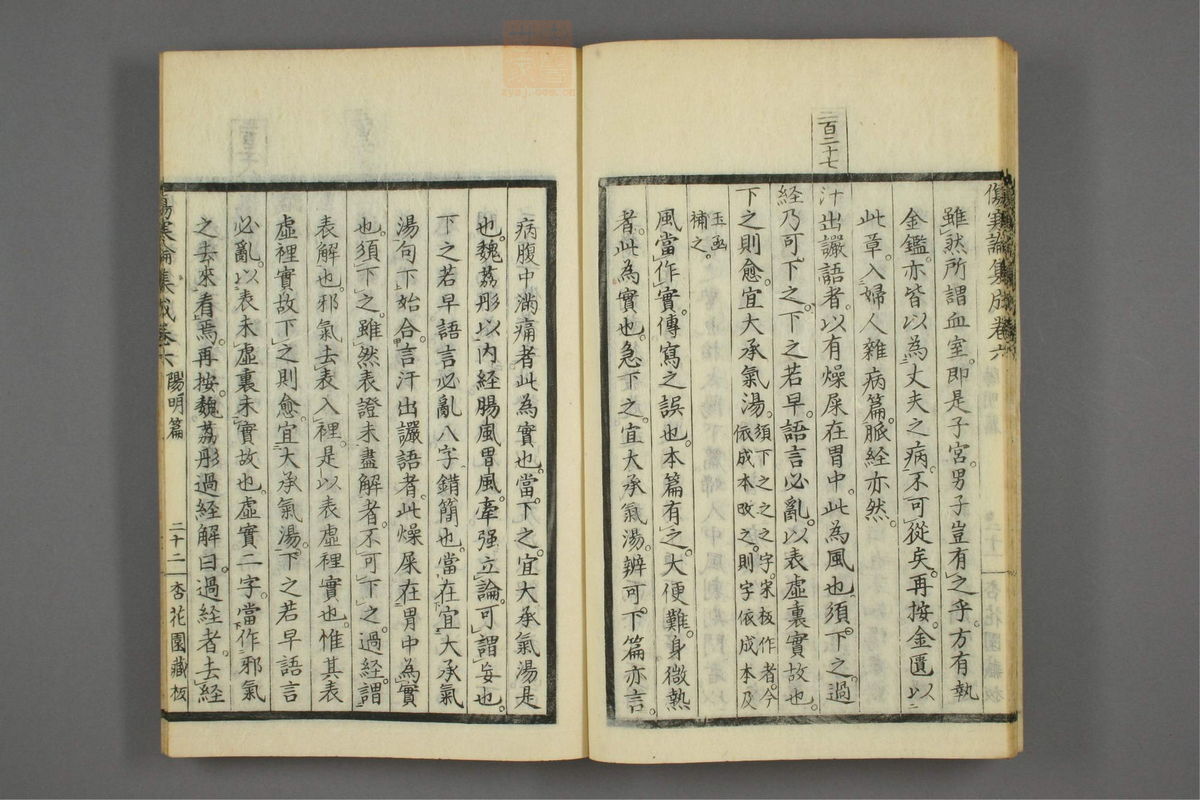 二百二十七
傷寒論集成卷六
雖然所謂血室。即是子宮。男子豈有之乎。方有執
金鑑。亦皆以為丈夫之病。不可從矣。再按。金匱以
此章。入婦人雜病篇。脈經亦然。
汁出讝語者。以有燥屎在胃中。此為風也。須下之。過
經乃可下之。下之若早。語言必亂。以表虛裏實故也。
下之則愈。宜大承氣湯。須下之之字。宋板作者。今
依成本改之。則字依成本及
玉函
補之。
風當作實。傳寫之誤也。本篇有之。大便難。身微熱
者。此為實也。急下之。宜大承氣湯。辨可下篇亦言。
病腹中滿痛者。此為實也。當下之。宜大承氣湯。是
也。魏荔彤以內經腸風胃風。牽強立論。可謂妄也。
下之若早語言必亂八字。錯簡也。當在宜大承氣
湯句下。始合。言汗出讝語者。此燥屎在胃中為實
也。須下之。雖然表證未盡解者。不可下之。過經。謂
表解也。邪氣去表入裡。是以表虛裡實也。惟其表
虛裡實。故下之則愈。宜大承氣湯。下之若早語言
必亂。以表未虛裏未實故也。虛實二字。當作邪氣
之去來看焉。再按。魏荔彤過經解曰。過經者。去經
傷寒論集成卷六
陽明篇
二十二
杏花園藏板